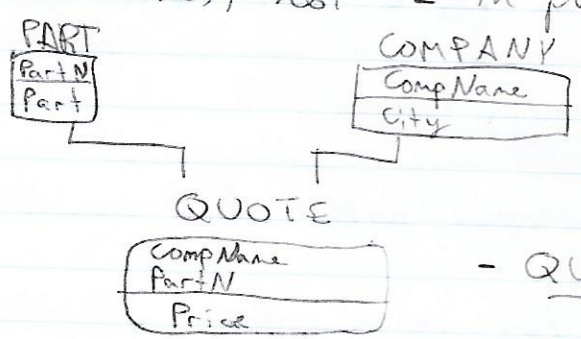 not
PART
PartN
Part
COMPANY
CompName
City
QUOTE
CompName
PartN
Price
- QU